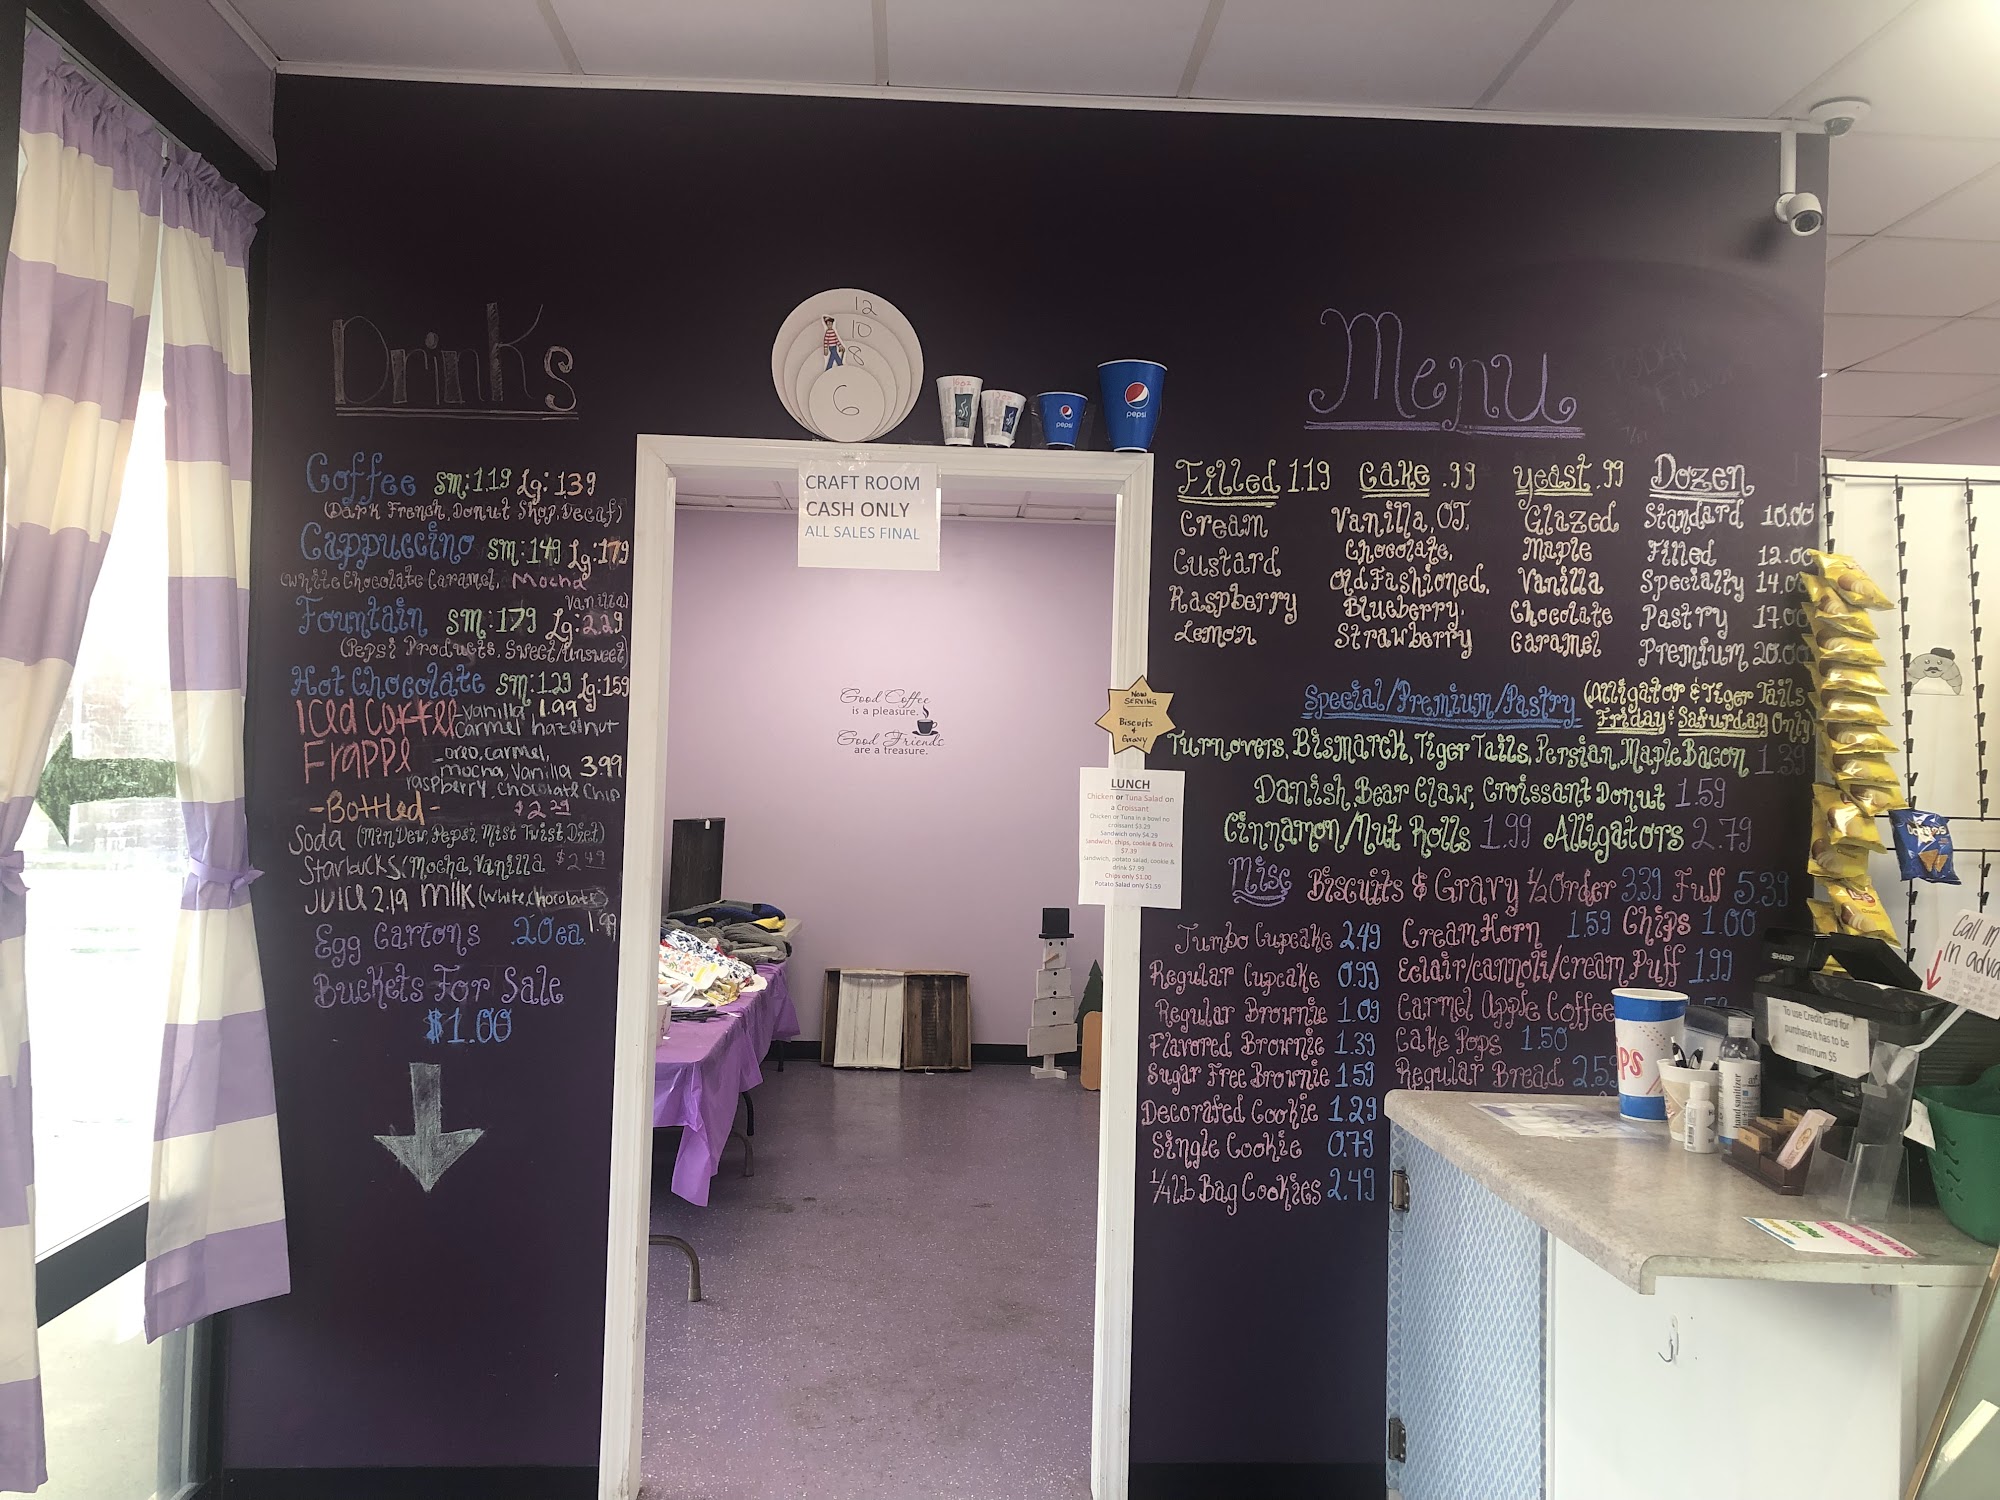 Drinks
Coffee sm: 1.19 Lg: 1.39
(Dark French, Donut Shop, Decaf)
Cappuccino sm: 1.49 Lg: 1.79
(White Chocolate Caramel, Mocha
Vanilla)
Fountain sm: 1.79 Lg: 2.29
(Pepsi Products, Sweet/Unsweet)
Hot Chocolate sm: 1.29 Lg: 1.59
Iced Coffee - Vanilla 1.99
Carmel hazelnut
Frappe - oreo, carmel,
mocha, Vanilla 3.99
raspberry, chocolate Chip
- Bottled - $2.29
Soda (Mtn Dew, Pepsi, Mist Twist, Diet)
Starbucks (Mocha, Vanilla $2.49
Juice 2.19 milk (White, Chocolate)
1.99
Egg Cartons .20 ea.
Buckets For Sale
$1.00
12
10
8
6
16oz
pepsi
pepsi
CRAFT ROOM
CASH ONLY
ALL SALES FINAL
Good Coffee
is a pleasure.
Good Friends
are a treasure.
Now
SERVING
Biscuits
&
Gravy
LUNCH
Chicken or Tuna Salad on
a Croissant
Chicken or Tuna in a bowl no
croissant $3.29
Sandwich only $4.29
Sandwich, chips, cookie & Drink
$7.39
Sandwich, potato salad, cookie &
drink $7.99
Chips only $1.00
Potato Salad only $1.59
Menu
Filled 1.19 Cake .99 Yeast .99 Dozen
Cream Vanilla, OJ, Glazed Standard 10.00
Custard Chocolate, Maple Filled 12.00
Raspberry Old Fashioned, Vanilla Specialty 14.00
Lemon Blueberry, Chocolate Pastry 17.00
Strawberry Caramel Premium 20.00
Special/Premium/Pastry (Alligator & Tiger Tails
Friday & Saturday Only)
Turnovers, Bismarck, Tiger Tails, Persian, Maple Bacon 1.39
Danish, Bear Claw, Croissant Donut 1.59
Cinnamon/Nut Rolls 1.99 Alligators 2.79
Misc Biscuits & Gravy 1/2 Order 3.39 Full 5.39
Jumbo Cupcake 2.49 Cream Horn 1.59 Chips 1.00
Regular Cupcake 0.99 Eclair/Cannoli/Cream Puff 1.99
Regular Brownie 1.09 Carmel Apple Coffee
Flavored Brownie 1.39 Cake Pops 1.50
Sugar Free Brownie 1.59 Regular Bread 2.59
Decorated Cookie 1.29
Single Cookie 0.79
1/4 lb Bag Cookies 2.49
Lay's
Doritos
Call in
in adva
SHARP
To use Credit card for
purchase it has to be
minimum $5
hand sanitizer